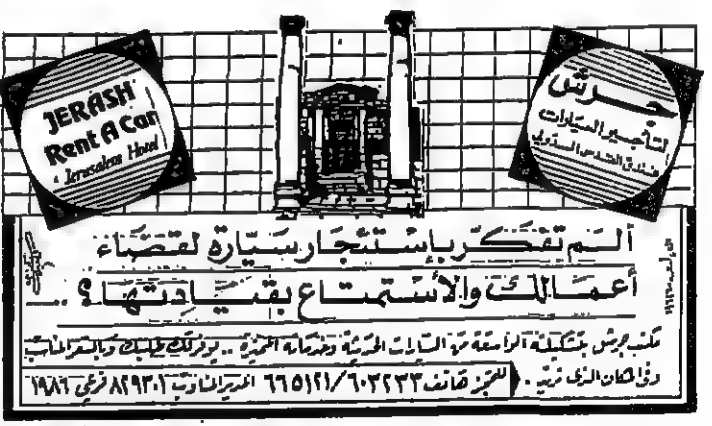 JERASH
Rent A Car
Jerusalem Hotel
جرش
لتأجير السيارات
فندق القدس الدولي
ألم تفكر بإستئجار سيارة لقضاء
أعمالك والأستمتاع بقيادتها؟ ..
مكتب جرش بتشكيلته الواسعة من السيارات الحديثة وخدماته المميزة .. يوفر لك طلبك وبالسعر المناسب
وفي المكان الذي تريد .
للحجز هاتف ٦٠٣٢٣٣/٦٦٥١٢١ المدير المناوب ٨٢٩٣٠١ فرعي ١٩٨٦